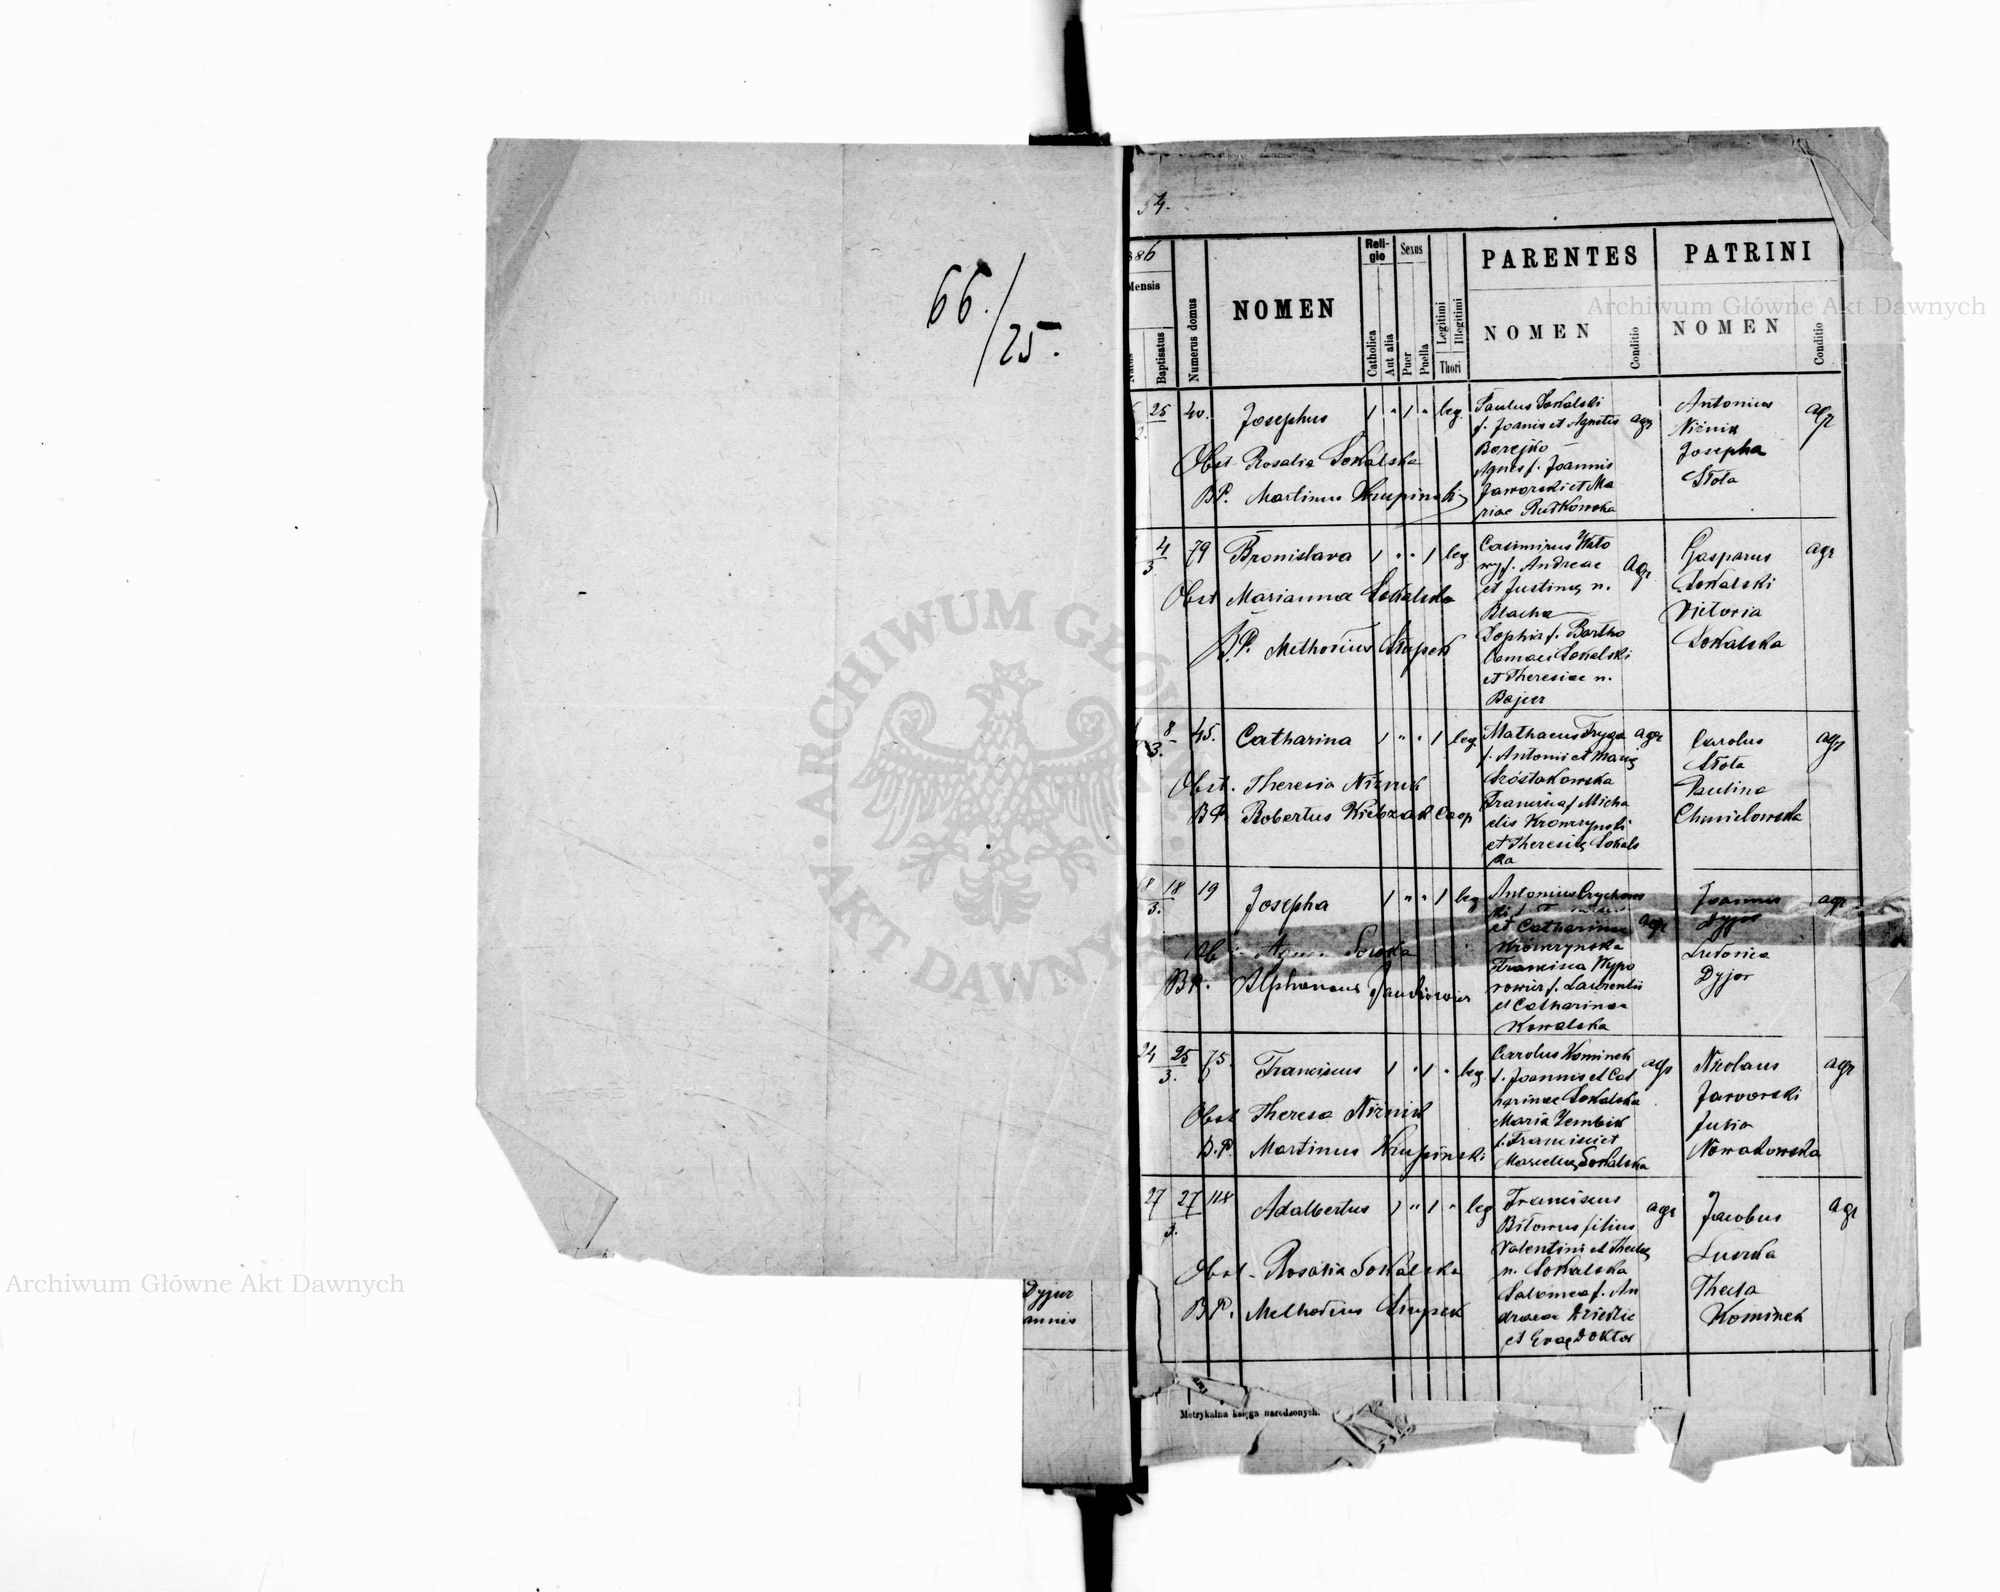 66./25.
54.
886
Mensis
Baptisatus
Numerus domus
NOMEN
Reli-
gio
Catholica
Aut alia
Sexus
Puer
Puella
Legitimi
Illegitimi
Thori
PARENTES
NOMEN
Conditio
PATRINI
NOMEN
Conditio
25 40. Josephus 1 " 1 " leg.
Paulus Sokalski
f. Joannis et Agnetis
Borejko
Agnes f. Joannis
Jaworski et Ma
riae Rutkowska
agr
Antonius
Niznik
Josepha
Stola
agr
Obst. Rosalia Sokalska
BP. Martinus Krupinski
4/3 79 Bronislava 1 " " 1 leg
Casimirus
f. Andreae
et Justinae n.
Blacha
Sophia f. Bartho
lomaei Sokalski
et Theresiae n.
Bajer
agr
Gasparus
Sokalski
Victoria
Sokalska
agr
Obst Marianna Sokalska
B.P. Methodius Slupek
8/3. 45. Catharina 1 " " 1 leg.
Mathaeus Fryga
f. Antonii et Mariae
Szóstakowska
Francisca f. Micha
elis
et Theresiae Sokals
ka
agr
Carolus
Stola
Paulina
Chmielowska
agr
Obst. Theresia Niznik
BP. Robertus Coop
18 18/3. 19 Josepha 1 " " 1 leg
Antonius
et Catharina
Francisca
f. Laurentii
et Catharinae
Kowalska
agr
Joannes
Dyjor
Ludovica
Dyjor
agr
BP. Alphonsus
24 25/3. 75. Franciscus 1 " 1 " leg.
Carolus Kominek
f. Joannis et Cat
harinae Sokalska
Maria Zembik
f. Francisci et
Sokalska
agr
Nicolaus
Jaworski
Julia
Nowakowska
agr
Obst Theresa Niznik
B.P. Martinus Krupinski
27 27/3. 118 Adalbertus 1 " 1 " leg
Franciscus
filius
Valentini et Theclae
n. Sokalska
Salomea f. An
dreae
et Evae Doktor
agr
Jacobus
Thecla
Kominek
agr
Obst. Rosalia Sokalska
BP. Methodius Slupek
Dyjur
annis
Metrykalna księga narodzonych.
ARCHIWUM GŁÓWNE AKT DAWNYCH
Archiwum Główne Akt Dawnych
Archiwum Główne Akt Dawnych